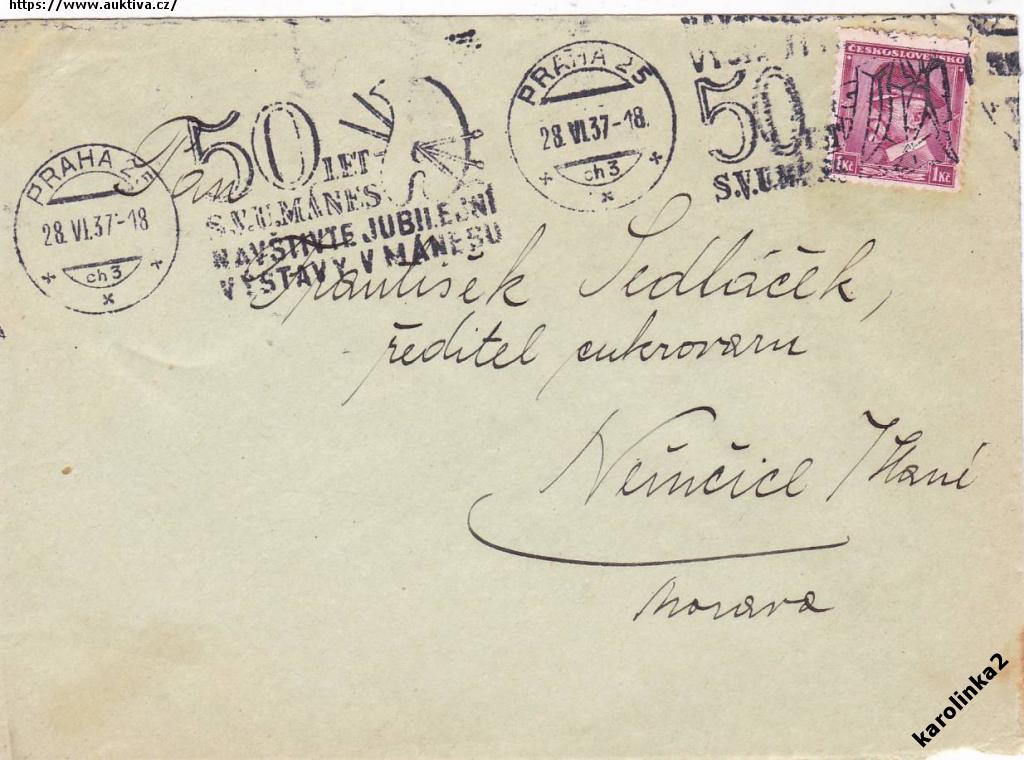 https://www.auktiva.cz/
PRAHA 25
28.VI.37-18
ch3
50 LET
S.V.U.MÁNES
NAVŠTIVTE JUBILEJNÍ
VÝSTAVY V MÁNESU
PRAHA 25
28.VI.37-18
ch3
50
S.V.U.MÁ
ČESKOSLOVENSKO
1Kč 1Kč
Pan
František Sedláček,
ředitel cukrovaru
Němčice /Hané
Morava
karolinka2